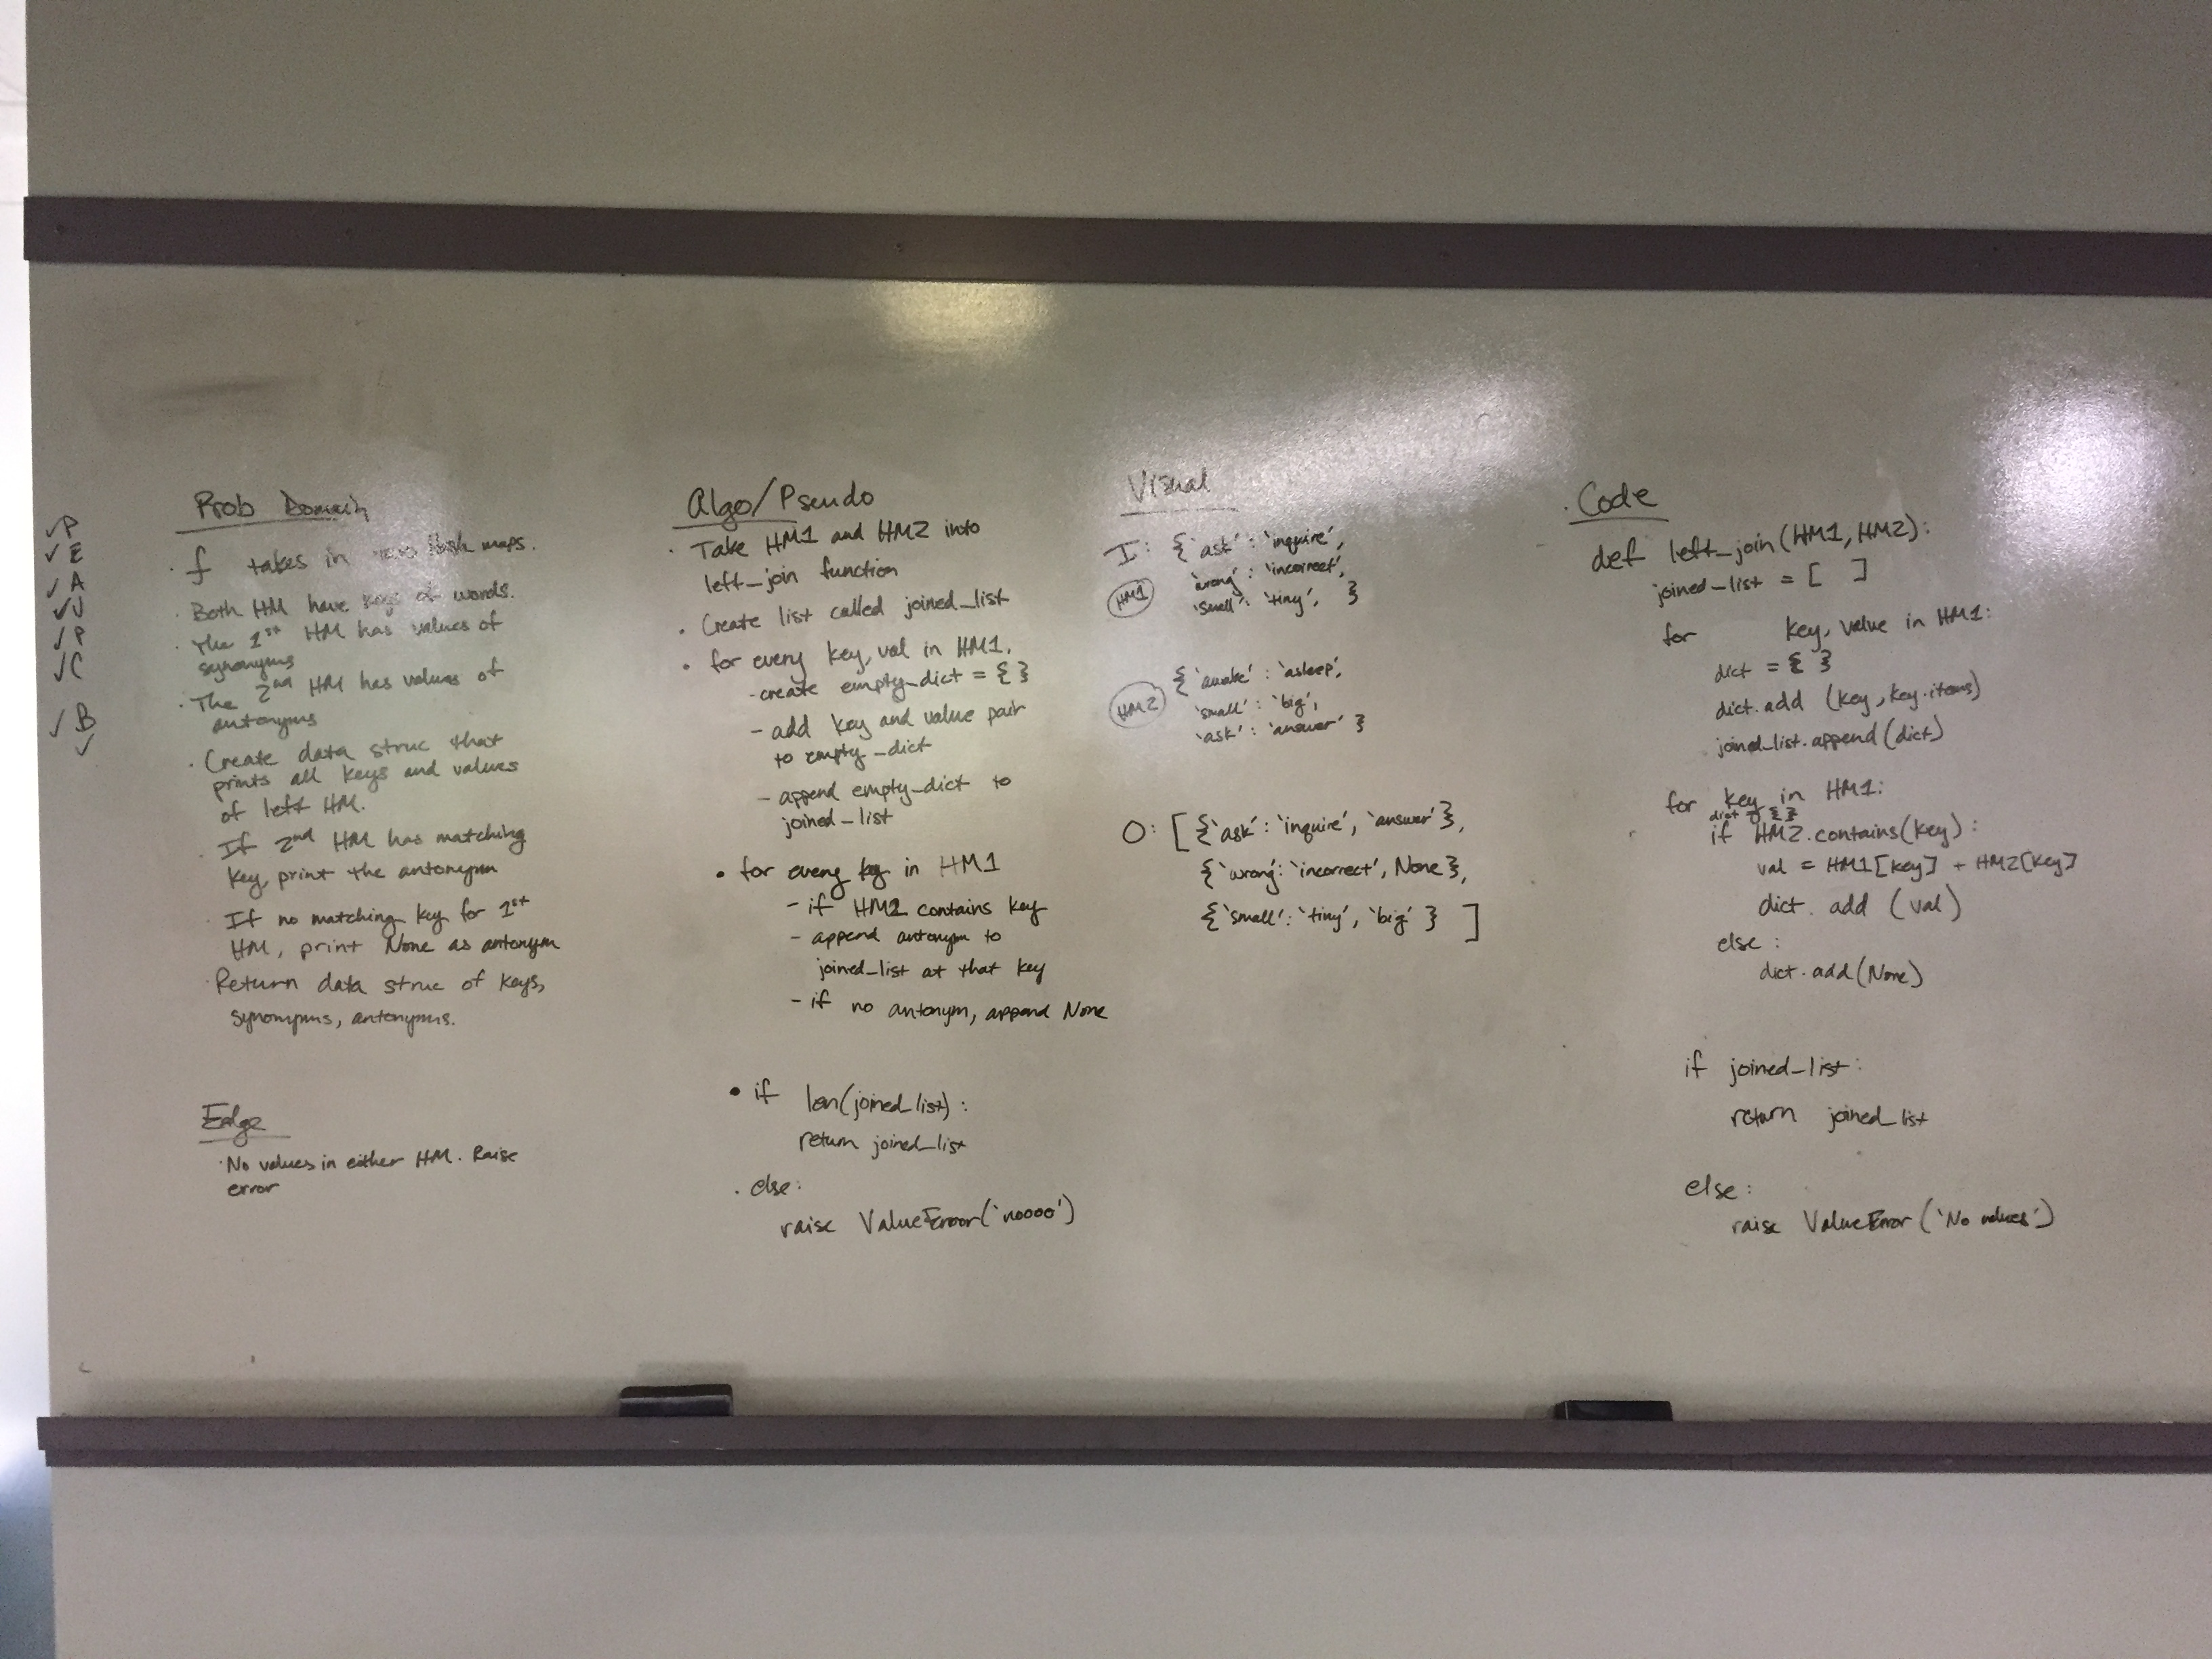 ✓P
✓E
✓A
✓V
✓P
✓C
✓B
✓
Prob Domain
· f takes in hash maps.
· Both HM have keys of words.
· The 1st HM has values of
synonyms
· The 2nd HM has values of
antonyms
· Create data struc that
prints all keys and values
of left HM.
· If 2nd HM has matching
key, print the antonym
· If no matching key for 1st
HM, print None as antonym
· Return data struc of keys,
synonyms, antonyms.
Edge
· No values in either HM. Raise
error
Algo/Pseudo
· Take HM1 and HM2 into
left_join function
· Create list called joined_list
· for every key, val in HM1.
- create empty_dict = { }
- add key and value pair
to empty_dict
- append empty_dict to
joined_list
· for every key in HM1
- if HM2 contains key
- append antonym to
joined_list at that key
- if no antonym, append None
· if len(joined_list):
return joined_list
· else:
raise ValueError('noooo')
Visual
I: {'ask': 'inquire',
HM1 'wrong': 'incorrect',
'small': 'tiny', }
{'awake': 'asleep',
HM2 'small': 'big',
'ask': 'answer' }
O: [{'ask': 'inquire', 'answer'},
{'wrong': 'incorrect', None},
{'small': 'tiny', 'big' } ]
· Code
def left_join(HM1, HM2):
joined_list = [ ]
for key, value in HM1:
dict = { }
dict.add (key, key.items)
joined_list.append(dict)
for key in HM1:
dict = { }
if HM2.contains(key):
val = HM1[key] + HM2[key]
dict. add (val)
else:
dict.add(None)
if joined_list:
return joined_list
else:
raise ValueError ('No values')